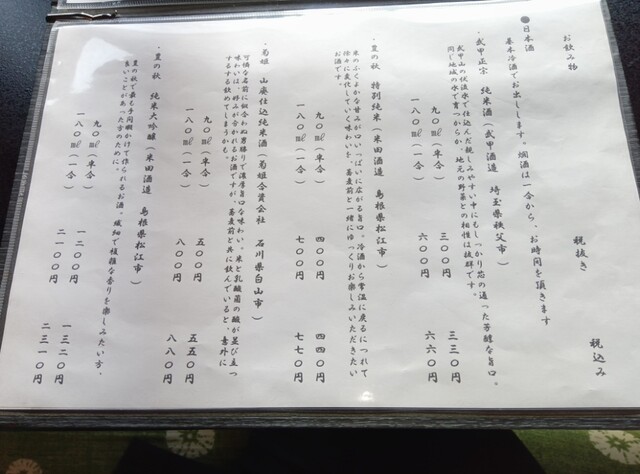 お飲み物　税抜き　税込み
●日本酒
基本冷酒でお出しします。燗酒は一合から、お時間を頂きます
・武甲正宗　純米酒（武甲酒造　埼玉県秩父市）
武甲山の伏流水で仕込んだ親しみやすい中にもしっかり芯の通った芳醇な旨口。
同じ地域の水で育つからか、地元の野菜との相性は抜群です。
九〇㎖（半合）　三〇〇円　三三〇円
一八〇㎖（一合）　六〇〇円　六六〇円
・豊の秋　特別純米（米田酒造　島根県松江市）
米のふくよかな甘みが口いっぱいに広がる旨口。冷酒から常温に戻るにつれて
徐々に変化していく味わいを、蕎麦前と一緒にゆっくりお楽しみいただきたい
お酒です。
九〇㎖（半合）　四〇〇円　四四〇円
一八〇㎖（一合）　七〇〇円　七七〇円
・菊姫　山廃仕込純米酒（菊姫合資会社　石川県白山市）
可憐な名前に似合わぬ男勝りで濃厚旨口な味わい。米と乳酸菌の酸が並び立つ
味わいは、好みが分かれるお酒ですが、蕎麦前と共に飲んでいると、意外に
するする飲めてしまうかも。
九〇㎖（半合）　五〇〇円　五五〇円
一八〇㎖（一合）　八〇〇円　八八〇円
・豊の秋　純米大吟醸（米田酒造　島根県松江市）
豊の秋で最も手間暇かけて作られるお酒。繊細で複雑な香りを楽しみたい方、
良いことがあった方のために。
九〇㎖（半合）　一二〇〇円　一三二〇円
一八〇㎖（一合）　二一〇〇円　二三一〇円